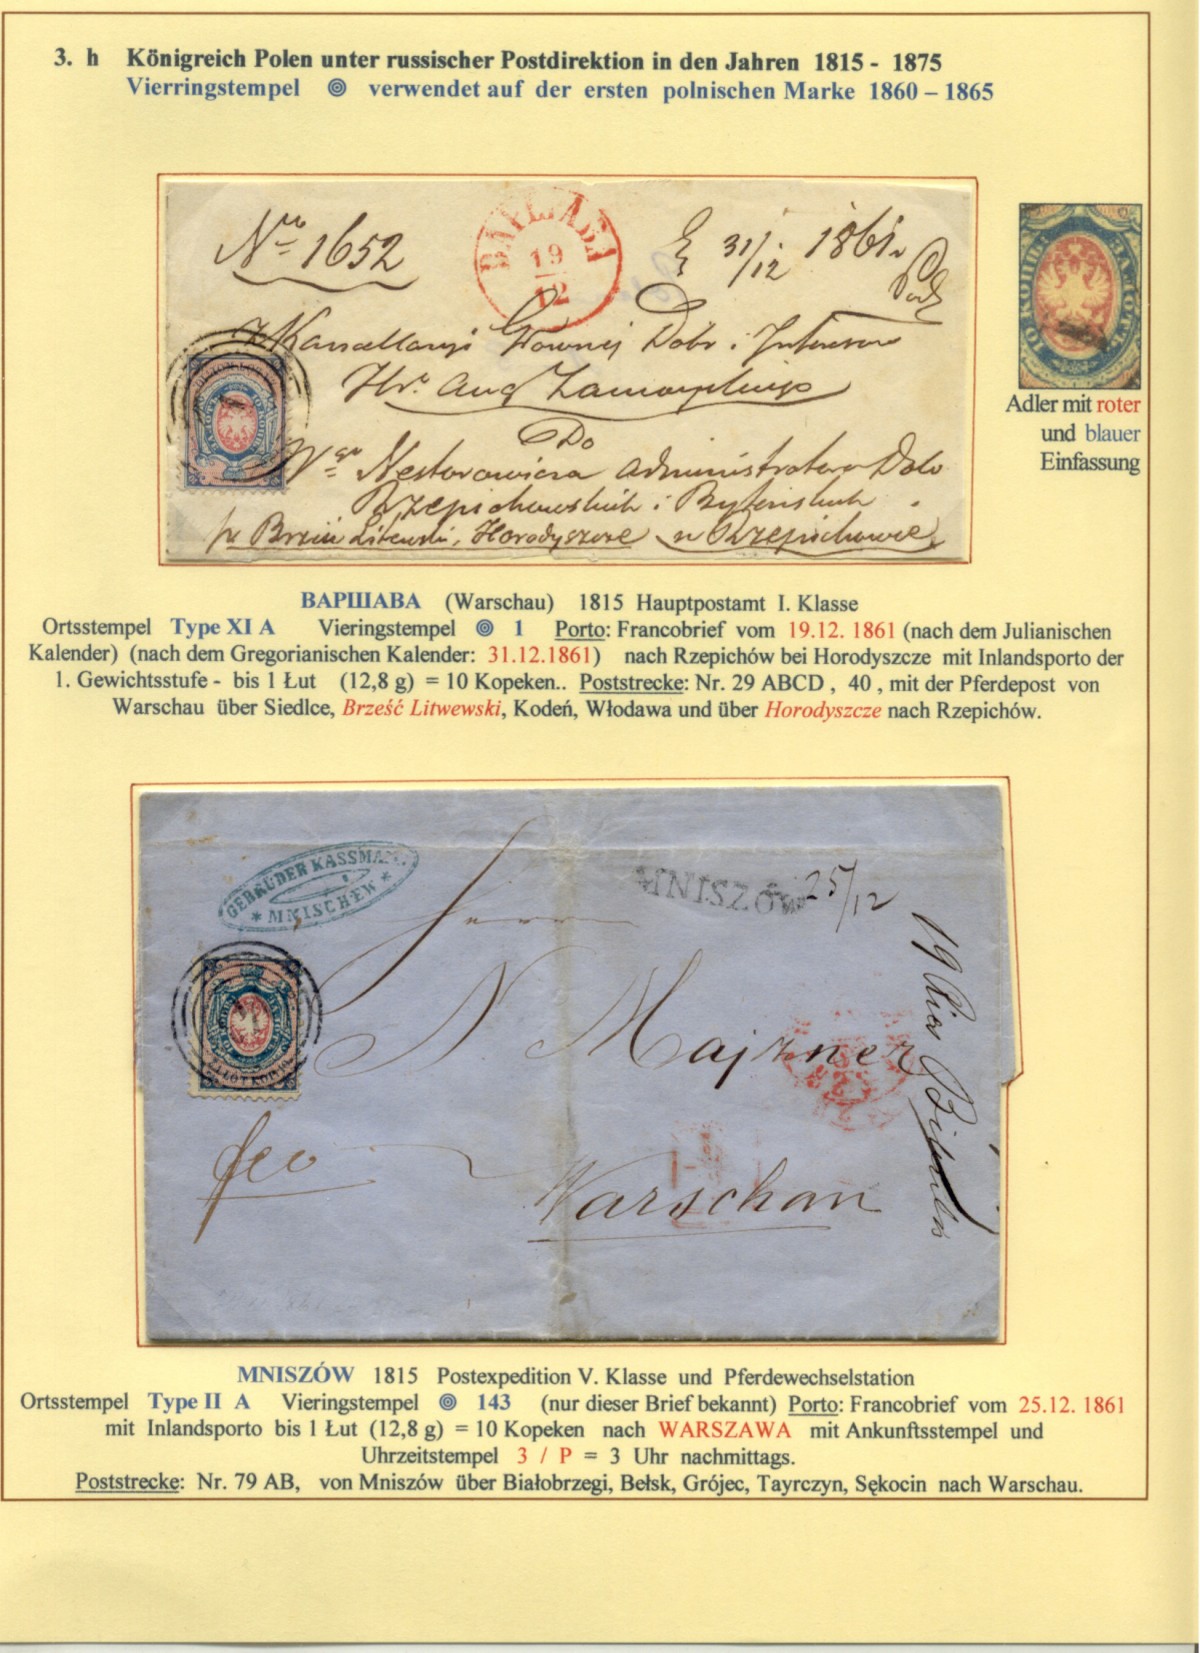 3. h Königreich Polen unter russischer Postdirektion in den Jahren 1815 - 1875
Vierringstempel verwendet auf der ersten polnischen Marke 1860 – 1865
No 1652
ВАРШАВА
19
12
31/12 1861.
z Kancellaryi Głownej Dobr i Interesow
Hr. Aug Zamoyskiego
Do
Wgo Nestorowicza Administratora Dobr
Rzepichowskich i Bytenskich
pr Brześć Litewski, Horodyszcze w Rzepichowie
Adler mit roter
und blauer
Einfassung
ВАРШАВА (Warschau) 1815 Hauptpostamt I. Klasse
Ortsstempel Type XI A Vieringstempel 1 Porto: Francobrief vom 19.12. 1861 (nach dem Julianischen
Kalender) (nach dem Gregorianischen Kalender: 31.12.1861) nach Rzepichów bei Horodyszcze mit Inlandsporto der
1. Gewichtsstufe - bis 1 Łut (12,8 g) = 10 Kopeken.. Poststrecke: Nr. 29 ABCD , 40 , mit der Pferdepost von
Warschau über Siedlce, Brześć Litwewski, Kodeń, Włodawa und über Horodyszcze nach Rzepichów.
GEBRÜDER KASSMAN
* MNISCHEW *
MNISZÓW 25/12
Herrn
N Majzner
fco
Warschau
MNISZÓW 1815 Postexpedition V. Klasse und Pferdewechselstation
Ortsstempel Type II A Vieringstempel 143 (nur dieser Brief bekannt) Porto: Francobrief vom 25.12. 1861
mit Inlandsporto bis 1 Łut (12,8 g) = 10 Kopeken nach WARSZAWA mit Ankunftsstempel und
Uhrzeitstempel 3 / P = 3 Uhr nachmittags.
Poststrecke: Nr. 79 AB, von Mniszów über Białobrzegi, Bełsk, Grójec, Tayrczyn, Sękocin nach Warschau.